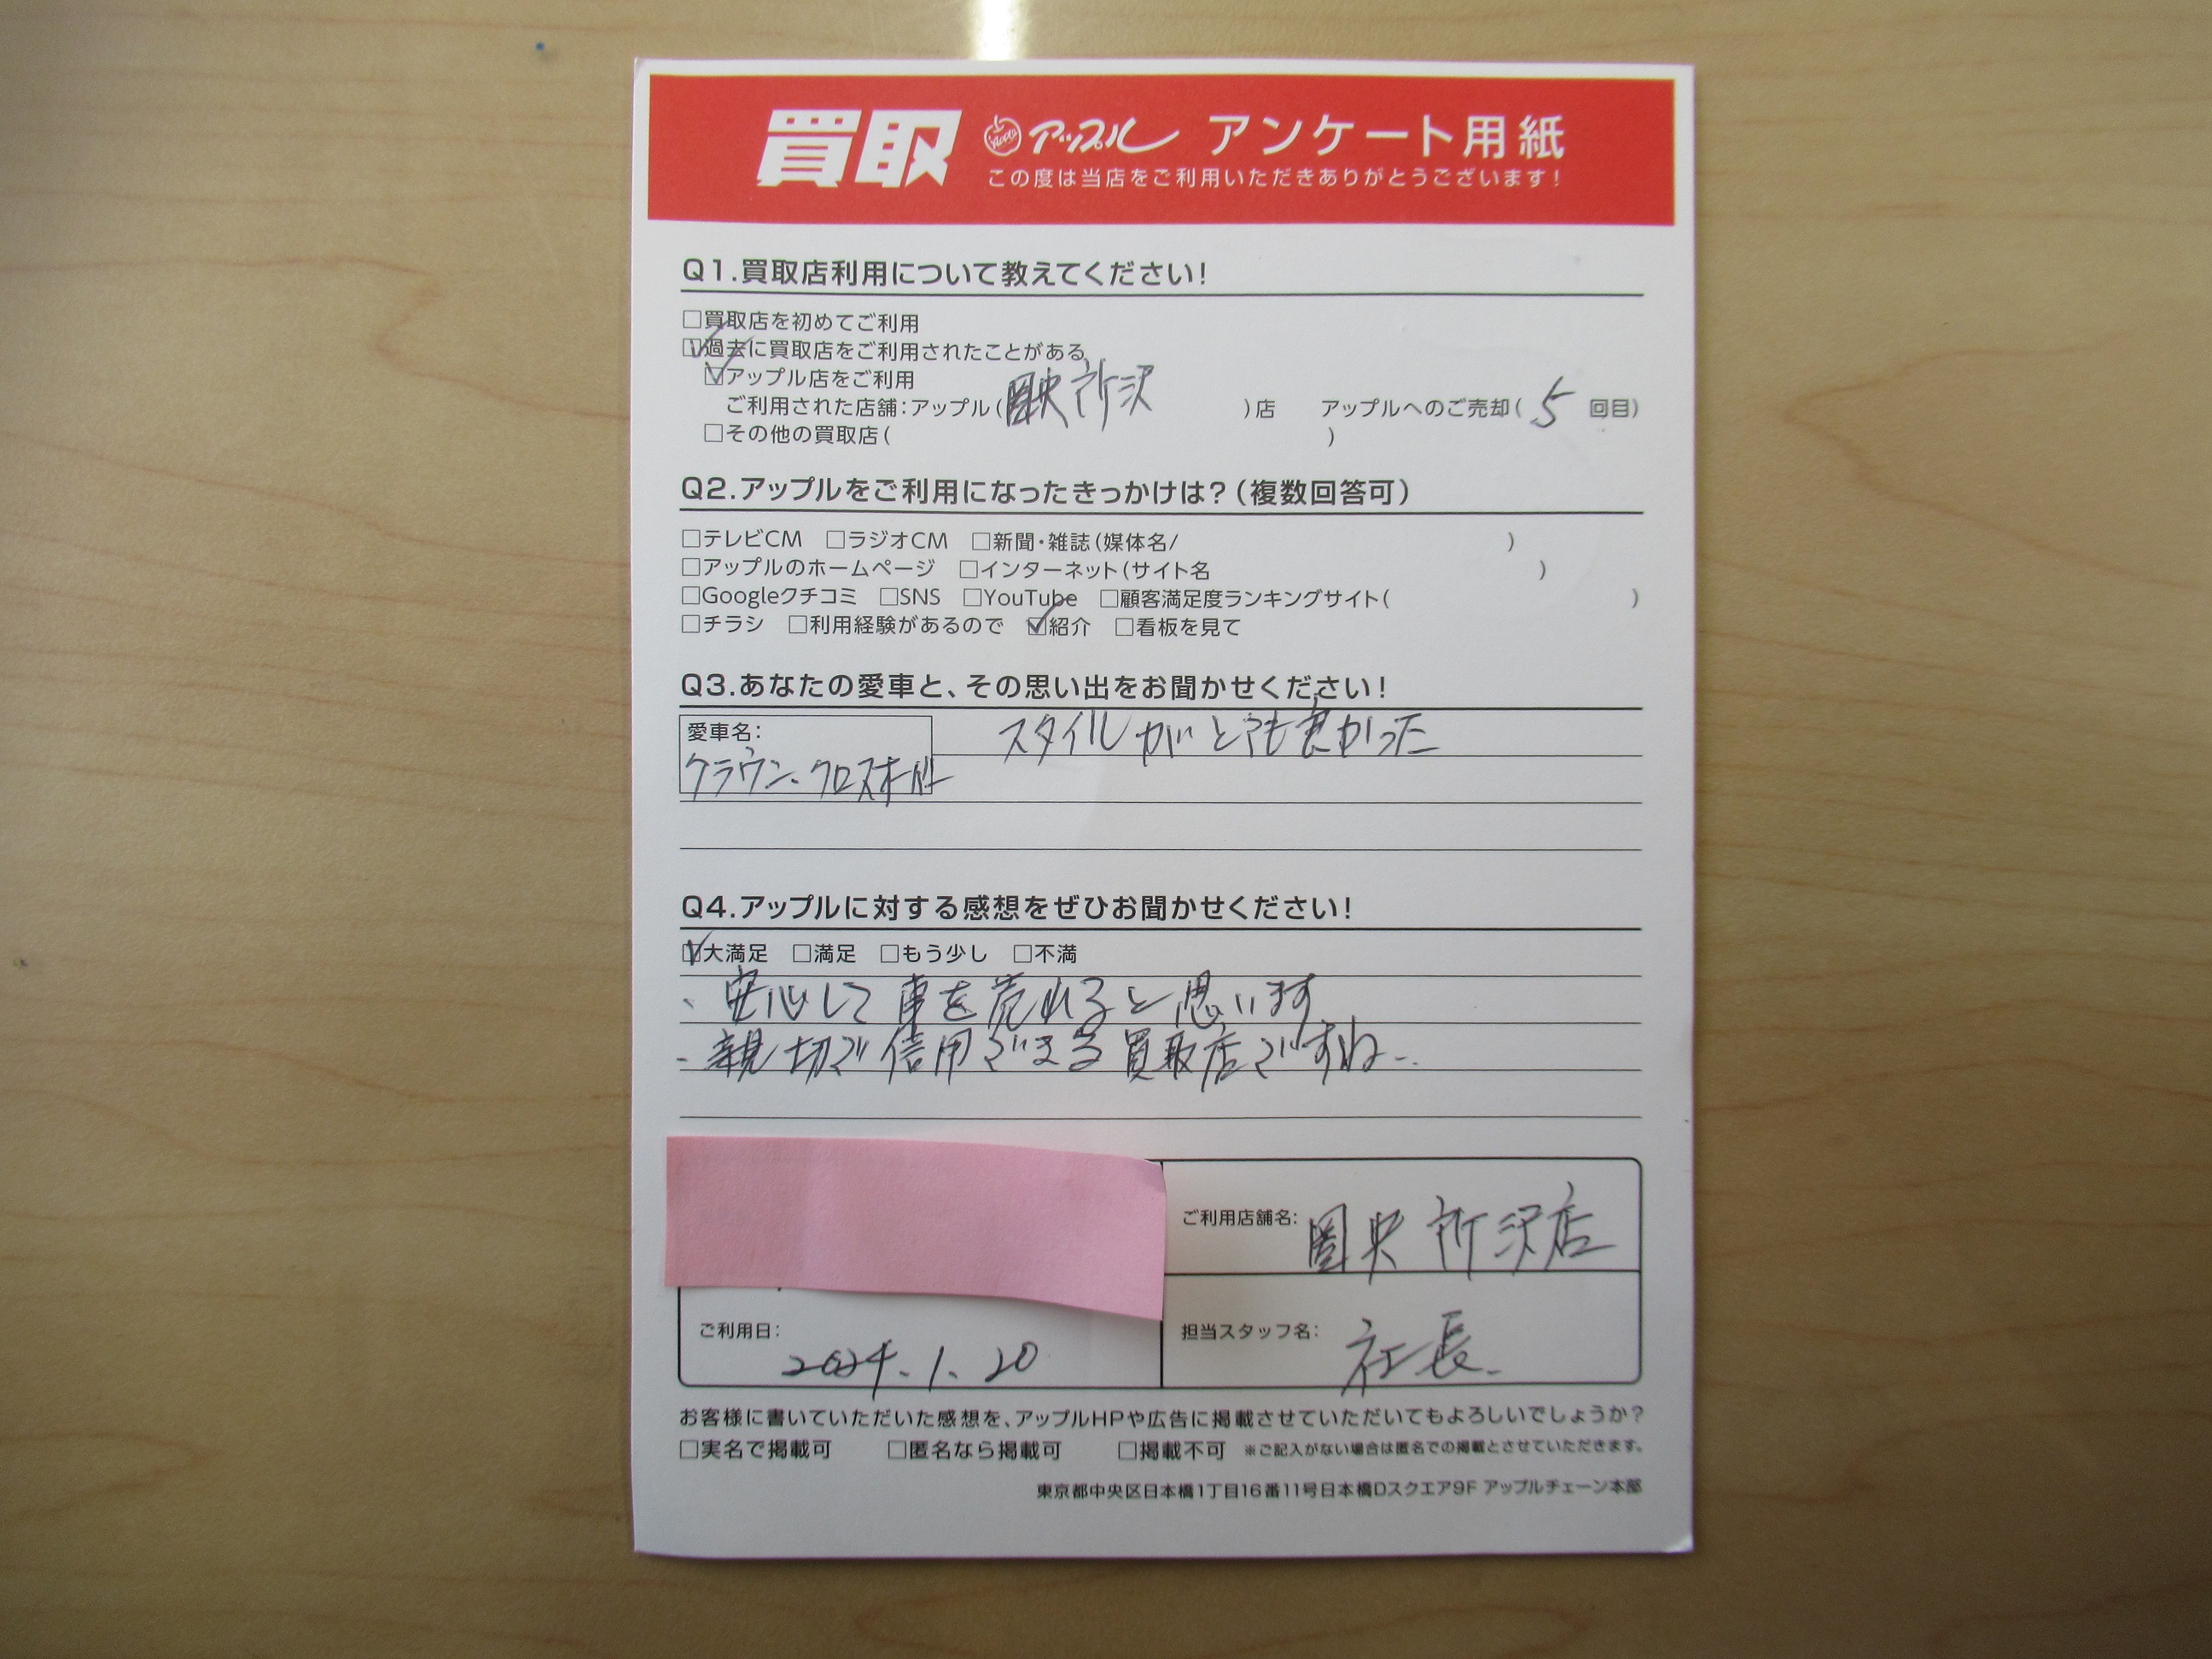 買取 Apple アップル アンケート用紙
この度は当店をご利用いただきありがとうございます!
Q1.買取店利用について教えてください!
□買取店を初めてご利用
☑過去に買取店をご利用されたことがある
☑アップル店をご利用
ご利用された店舗:アップル(圏央所沢)店 アップルへのご売却(5回目)
□その他の買取店( )
Q2.アップルをご利用になったきっかけは?(複数回答可)
□テレビCM □ラジオCM □新聞・雑誌(媒体名/ )
□アップルのホームページ □インターネット(サイト名 )
□Googleクチコミ □SNS □YouTube □顧客満足度ランキングサイト( )
□チラシ □利用経験があるので ☑紹介 □看板を見て
Q3.あなたの愛車と、その思い出をお聞かせください!
愛車名: スタイルがとても良かった
クラウン・クロスオーバー
Q4.アップルに対する感想をぜひお聞かせください!
☑大満足 □満足 □もう少し □不満
、安心して車を売れると思います
- 親切で信用できる買取店ですね…
ご利用店舗名: 圏央所沢店
ご利用日: 2024.1.20 担当スタッフ名: 社長.
お客様に書いていただいた感想を、アップルHPや広告に掲載させていただいてもよろしいでしょうか?
□実名で掲載可 □匿名なら掲載可 □掲載不可 ※ご記入がない場合は匿名での掲載とさせていただきます。
東京都中央区日本橋1丁目16番11号日本橋Dスクエア9F アップルチェーン本部